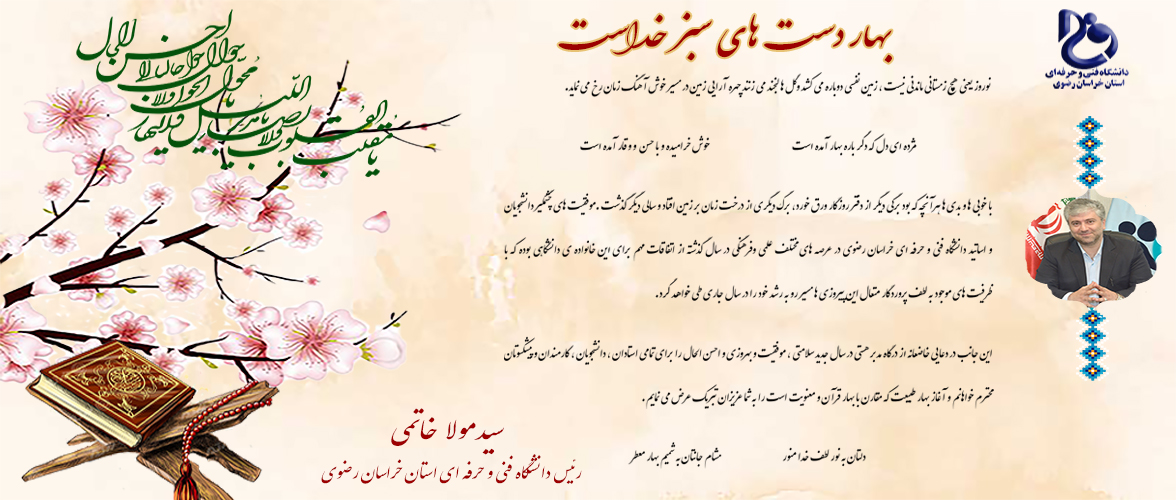 بهار دست های سبز خداست
دانشگاه فنی و حرفه‌ای
استان خراسان رضوی
نوروز یعنی هیچ زمستانی ماندنی نیست ، زمین نفسی دوباره می کشد و گل ها لبخند می زنند چهره آرایی زمین در مسیر خوش آهنگ زمان رخ می نماید.
مژده ای دل که دگر باره بهار آمده است خوش خرامیده و با حسن و وقار آمده است
با خوبی ها و بدی ها هر آنچه که بود برگی دیگر از دفتر روزگار ورق خورد، برگ دیگری از درخت زمان بر زمین افتاد و سالی دیگر گذشت .موفقیت های چشمگیر دانشجویان
و اساتید دانشگاه فنی و حرفه ای خراسان رضوی در عرصه های مختلف علمی و فرهنگی در سال گذشته از اتفاقات مهم برای این خانواده ی دانشگاهی بوده که با
ظرفیت های موجود به لطف پروردگار متعال این پیروزی ها مسیر رو به رشد خود را در سال جاری طی خواهد کرد.
این جانب در دعایی خاضعانه از درگاه مدبر هستی در سال جدید سلامتی ، موفقیت و بهروزی و احسن الحال را برای تمامی استادان ، دانشجویان ، کارمندان و پیشکسوتان
محترم خواهانم و آغاز بهار طبیعت که مقارن با بهار قرآن و معنویت است را به شما عزیزان تبریک عرض می نمایم .
دلتان به نور لطف خدا منور مشام جانتان به شمیم بهار معطر
سید مولا خاتمی
رئیس دانشگاه فنی و حرفه ای استان خراسان رضوی
یا مقلب القلوب و الابصار
یا مدبر اللیل و النهار
یا محول الحول و الاحوال
حول حالنا الی احسن الحال